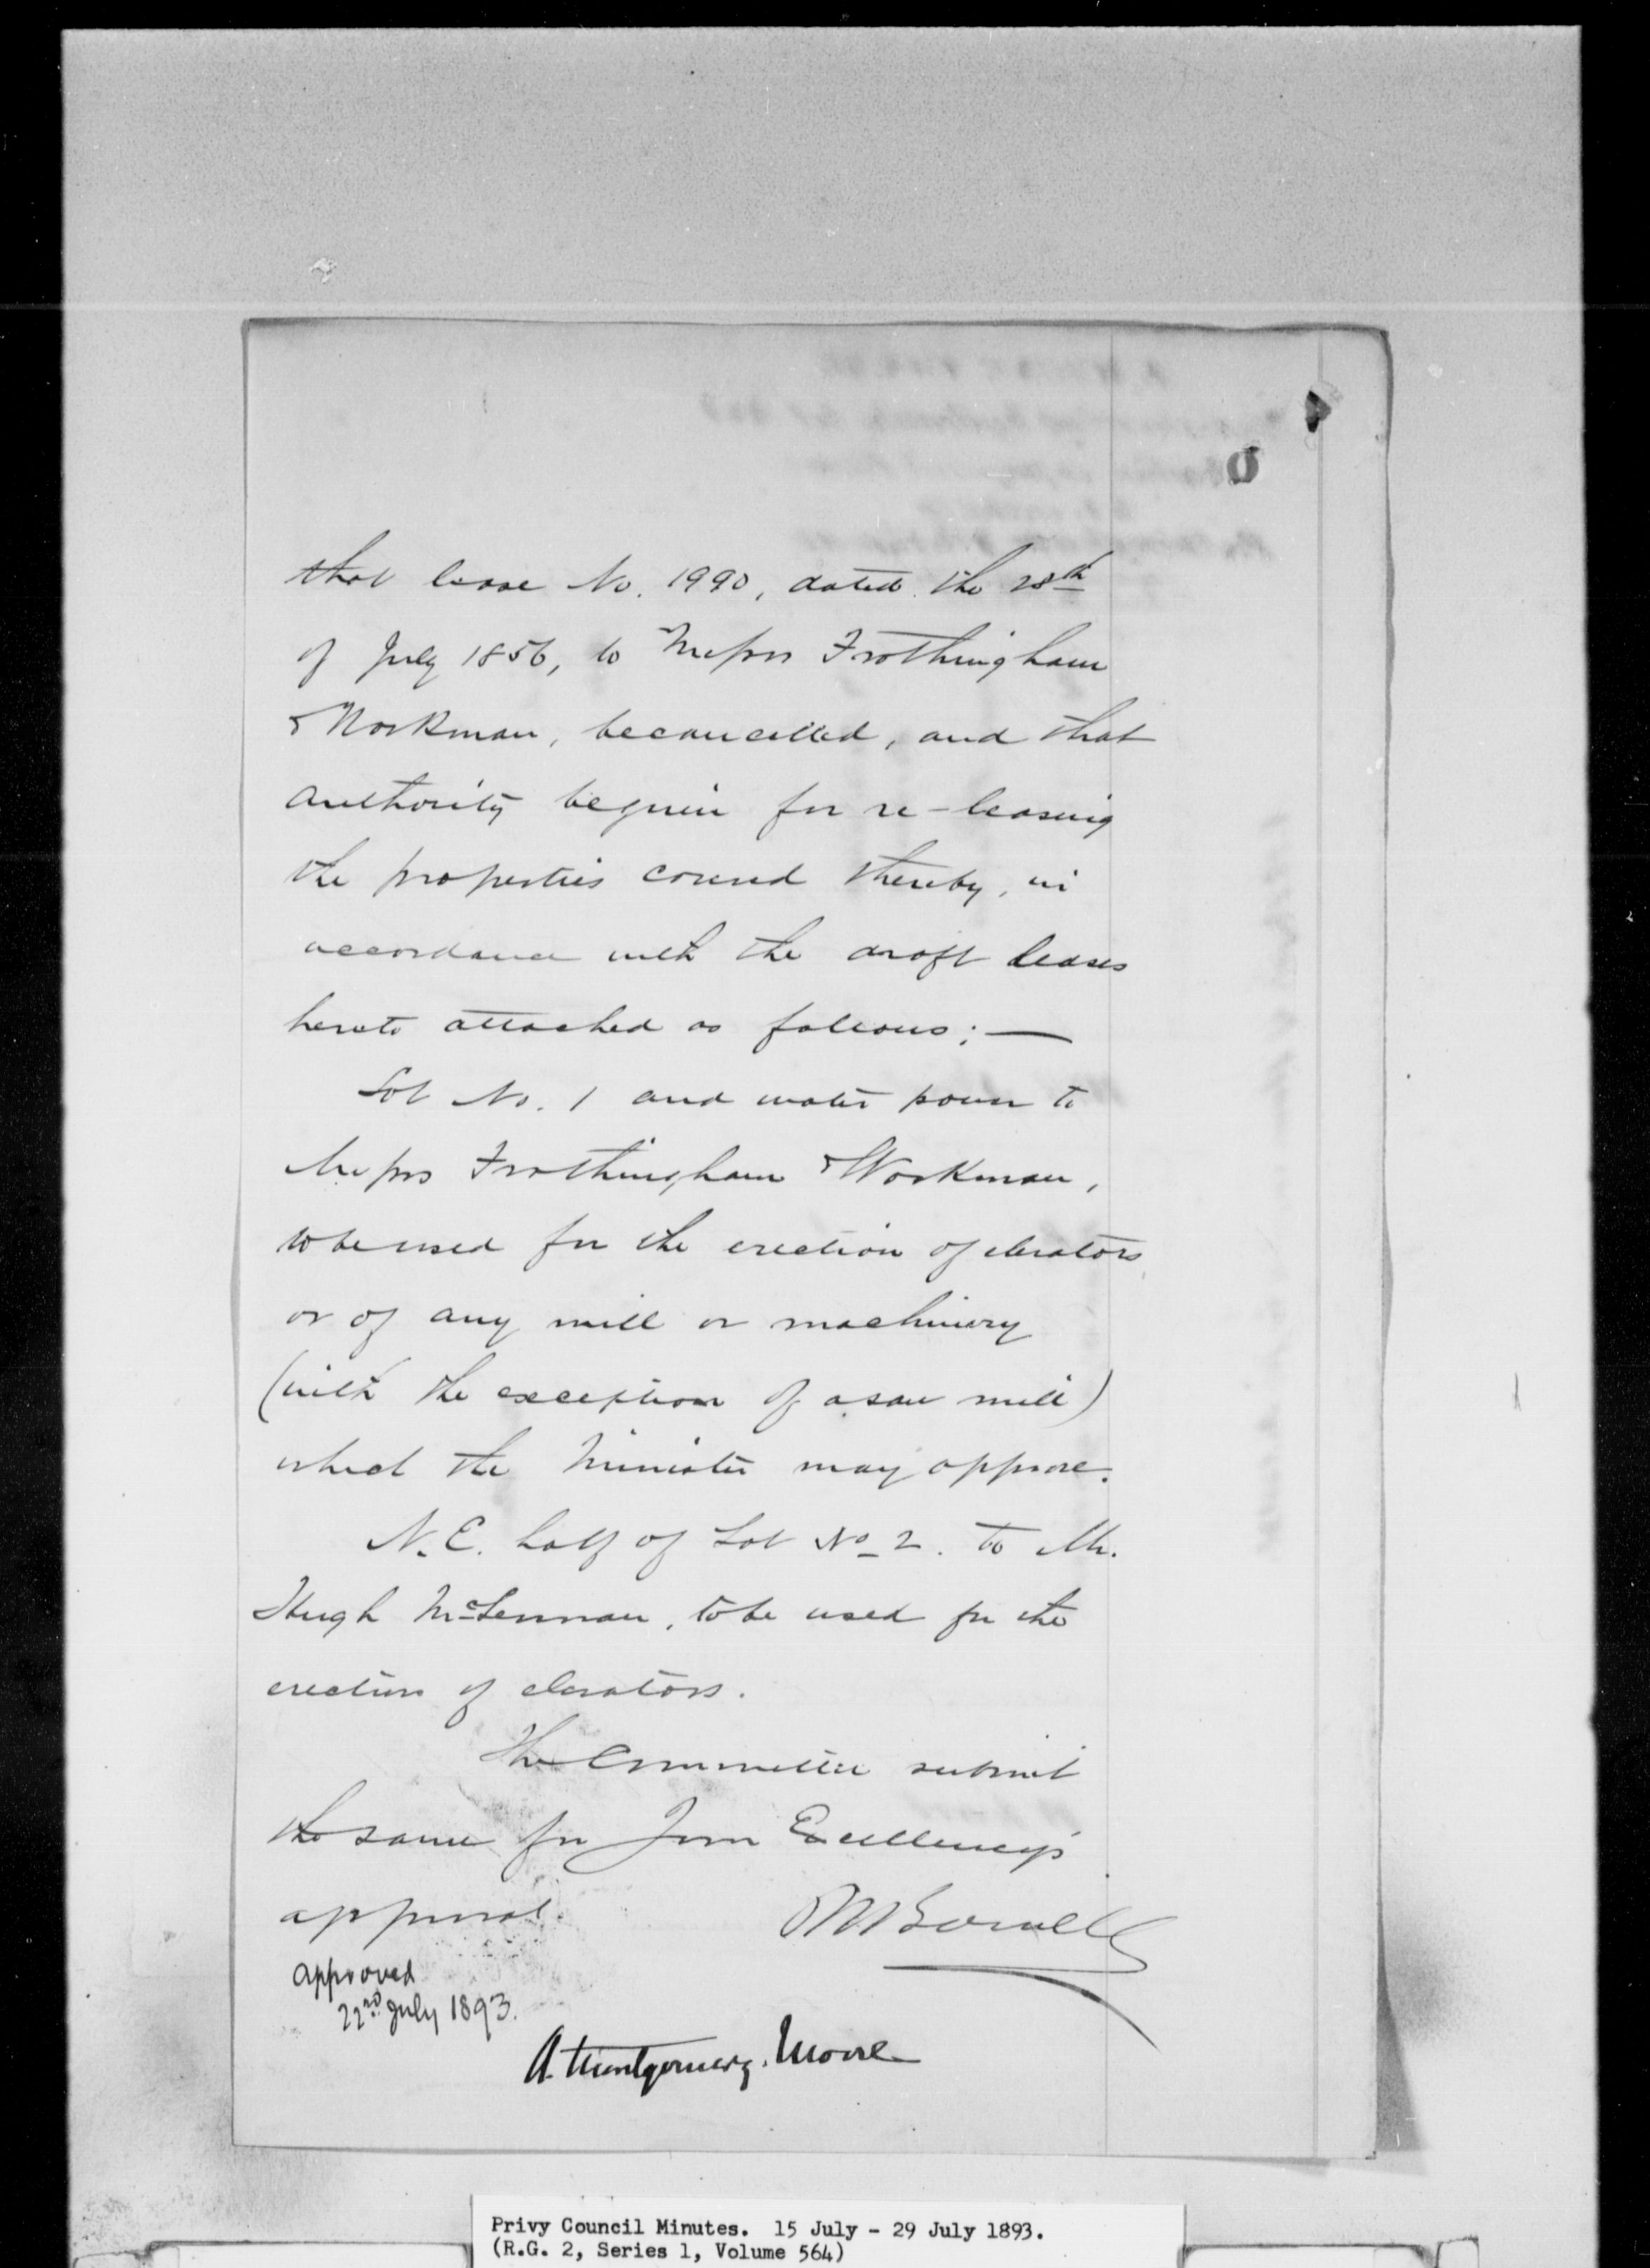 that lease No. 1990, dated the 28th
of July 1856, to Messrs Frothingham
& Workman, be cancelled, and that
authority be given for re-leasing
the properties covered thereby, in
accordance with the draft leases
hereto attached as follows; —
Lot No. 1 and water power to
Messrs Frothingham & Workman,
to be used for the erection of elevators
or of any mill or machinery
(with the exception of a saw mill)
which the Minister may approve.
N.E. half of Lot No 2. to Mr.
Hugh McLennan, to be used for the
erection of elevators.
The Committee submit
the same for Your Excellency's
approval.
Bowell
approved
22nd July 1893.
A. Montgomery. Moore
Privy Council Minutes. 15 July - 29 July 1893.
(R.G. 2, Series 1, Volume 564)